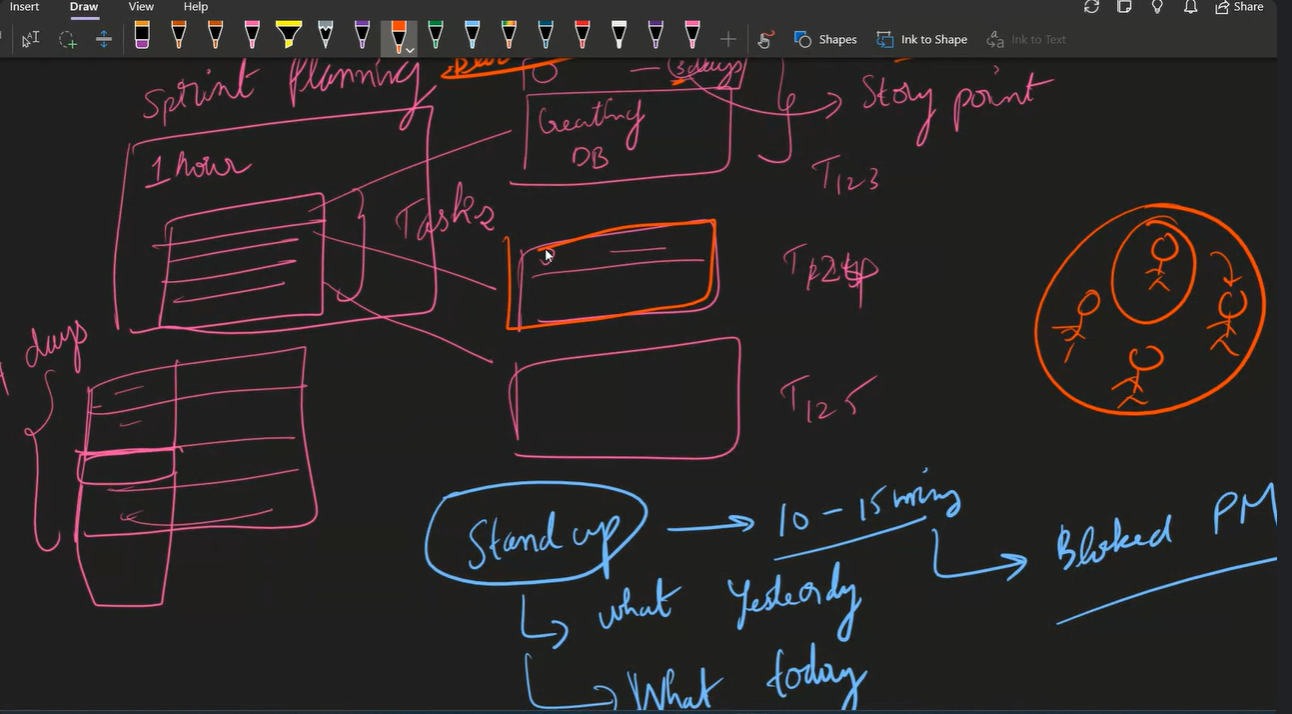 Insert Draw View Help Share
Shapes Ink to Shape Ink to Text
Sprint Planning
— 3 days
Story point
Creating
DB
1 hour
T123
Tasks
T125
days
Stand up
10 - 15 mins
Bloked PM
what Yesterdy
What today